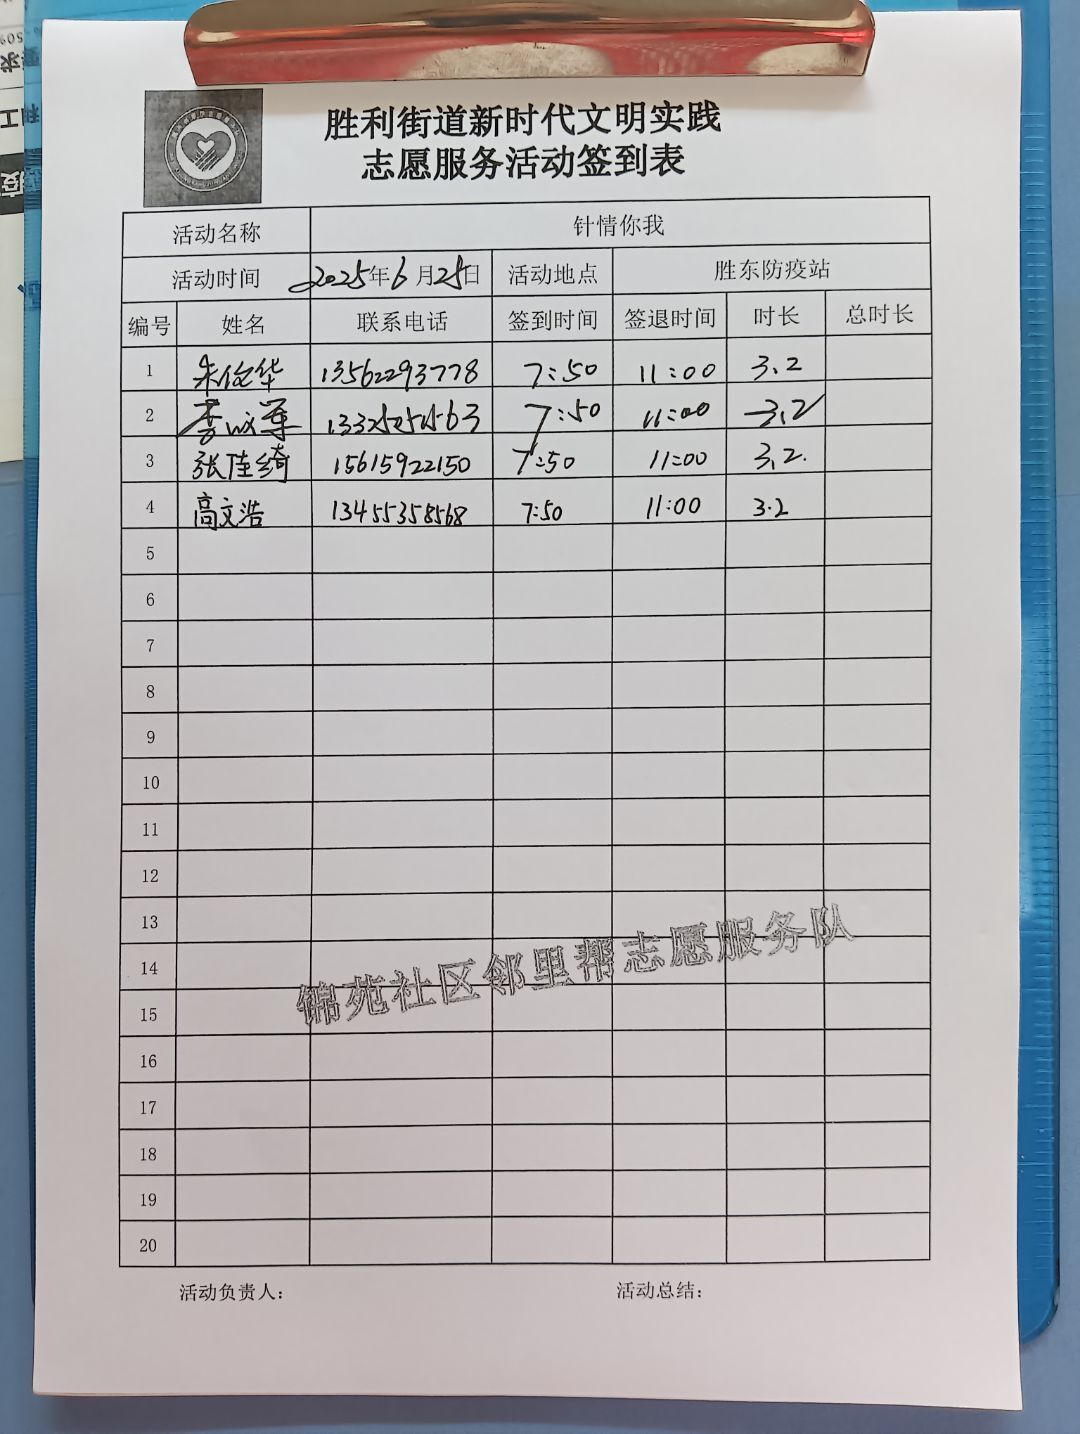 胜利街道新时代文明实践
志愿服务活动签到表
活动名称 针情你我
活动时间 2025年6月25日 活动地点 胜东防疫站
编号 姓名 联系电话 签到时间 签退时间 时长 总时长
1 朱俊华 13562293778 7:50 11:00 3.2
2 李 军 7:50 11:00 3.2
3 张佳绮 15615922150 7:50 11:00 3.2.
4 高文浩 13455358568 7:50 11:00 3.2
5
6
7
8
9
10
11
12
13
14
15
16
17
18
19
20
锦苑社区邻里帮志愿服务队
活动负责人: 活动总结: